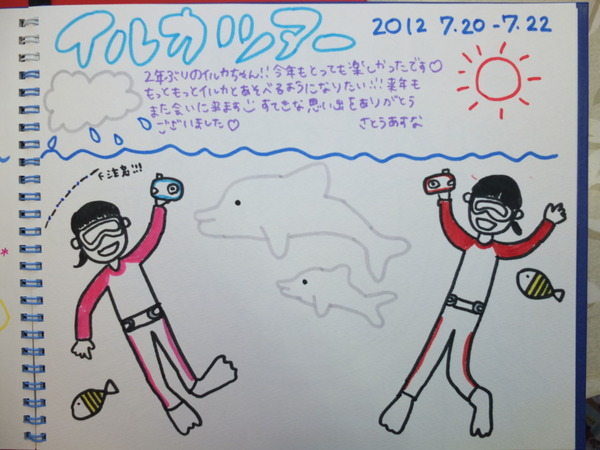 イルカツアー
2012 7.20-7.22
2年ぶりのイルカちゃん!! 今年もとっても楽しかったです♡
もっともっとイルカとあそべるようになりたい!!! 来年も
また会いに来ます すてきな思い出をありがとう
ございました♡ さとうあすな
注名!!!